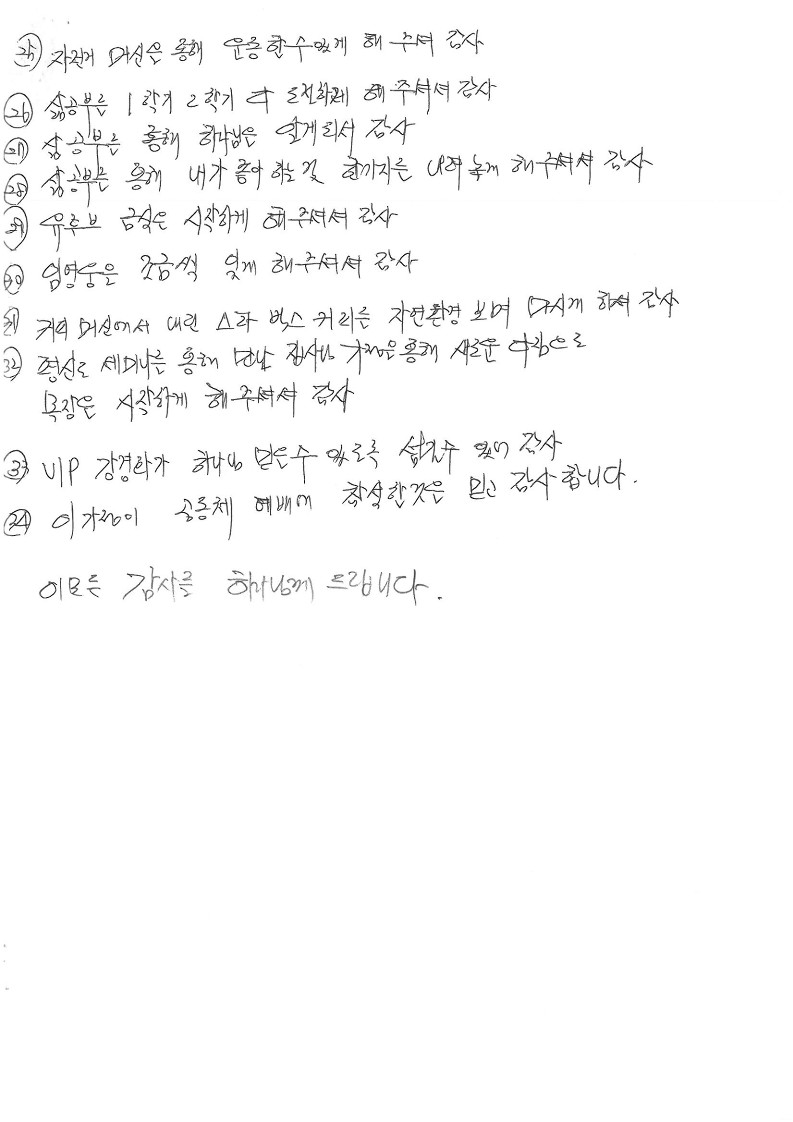 ㉕ 자전거 머신을 통해 운동할수있게 해 주셔 감사
㉖ 삶공부를 1학기 2학기 다 도전하게 해 주셔서 감사
㉗ 삶공부를 통해 하나님을 알게되서 감사
㉘ 삶공부를 통해 내가 좋아하는것 한가지를 내려놓게 해주셔서 감사
㉙ 유튜브 금식을 시작하게 해주셔서 감사
㉚ 임영웅을 조금씩 잊게 해주셔서 감사
㉛ 커피 머신에서 내린 스타벅스 커피를 자연환경 보며 마시게 하셔 감사
㉜ 평신도 세미나를 통해 만난 집사님 가정을통해 새로운 다짐으로
목장을 시작하게 해주셔서 감사
㉝ VIP 강경화가 하나님 믿을수 있도록 섬길수 있어 감사
㉞ 이가정이 공동체 예배에 참석할것을 믿고 감사합니다.
이모든 감사를 하나님께 드립니다.